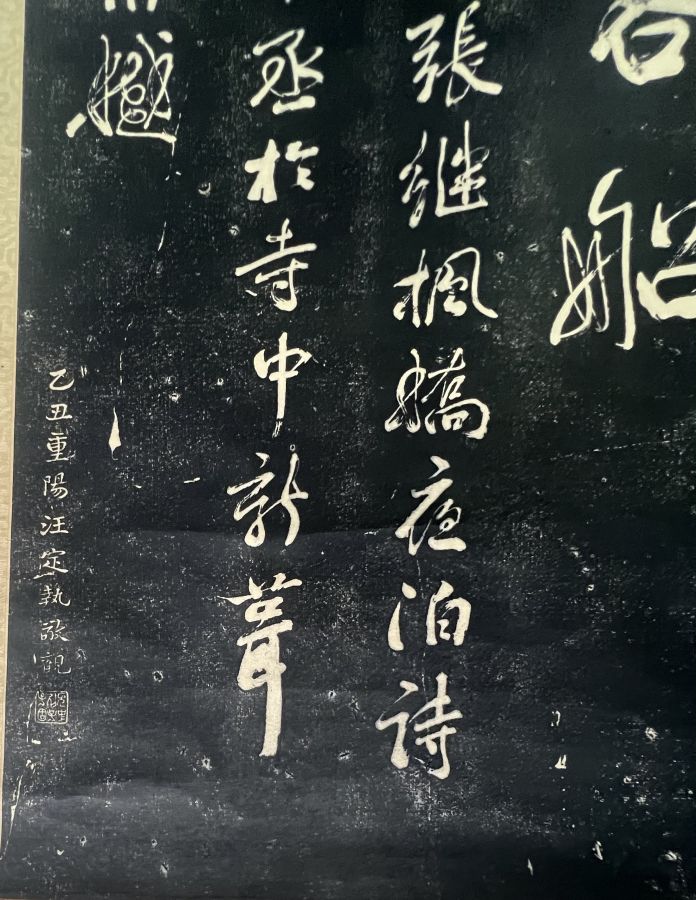 客船
張継楓橋夜泊詩
丞於寺中新葺
樾
乙丑重陽汪定執敬觀